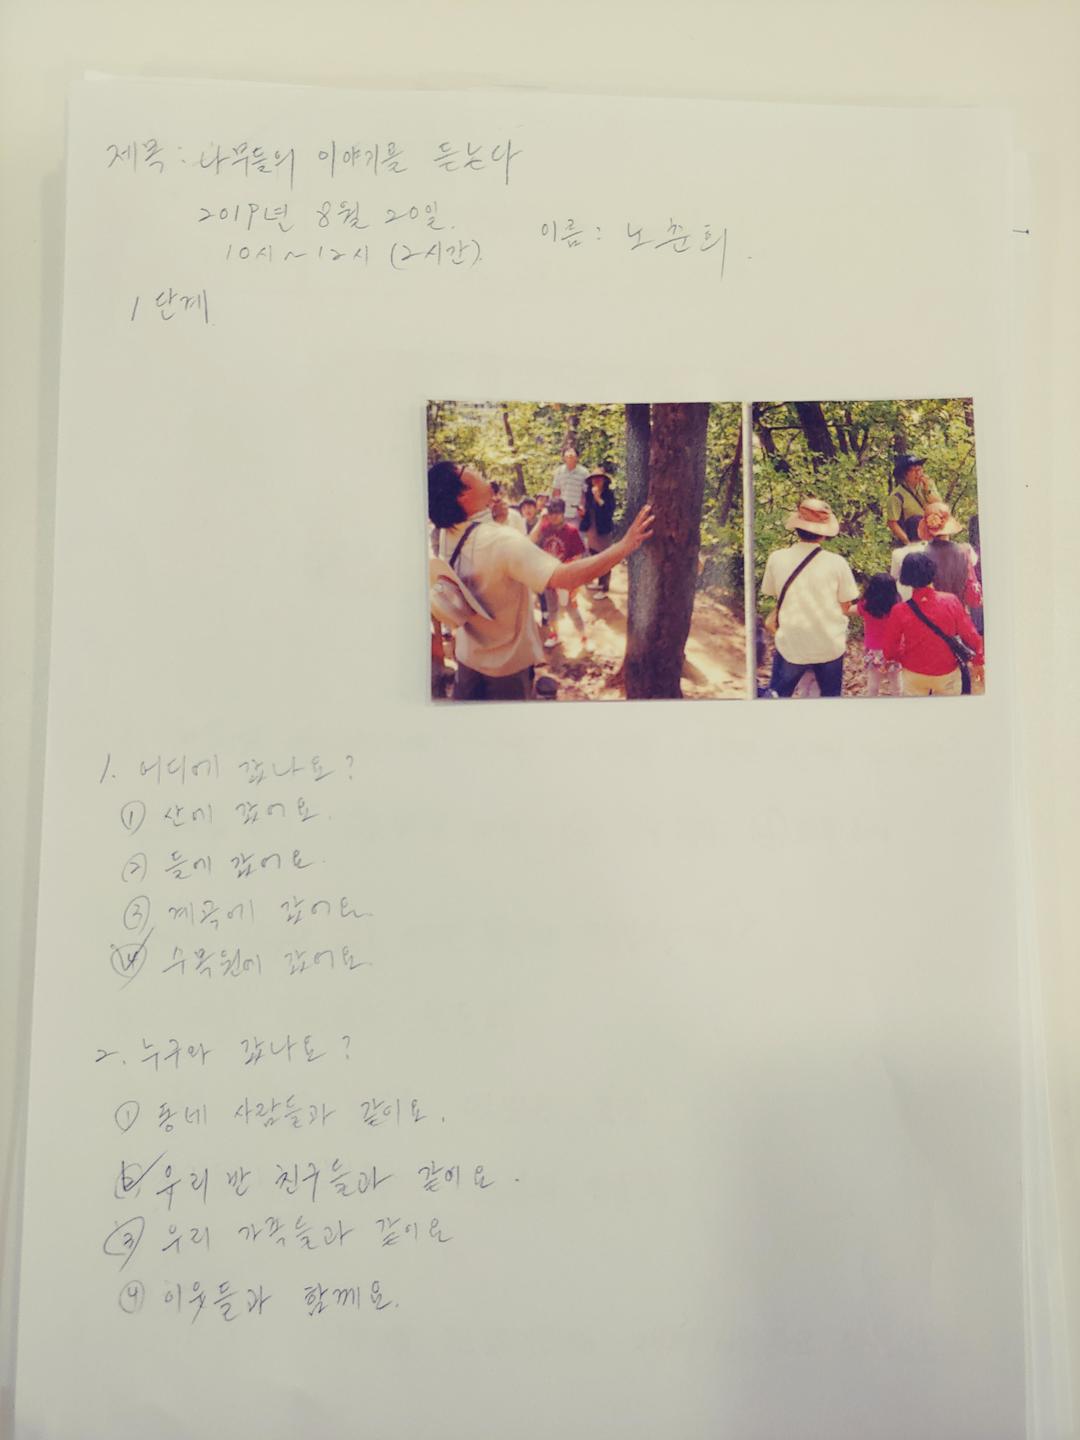 제목: 나무들의 이야기를 듣는다
2019년 8월 20일.
10시~12시 (2시간).
이름: 노춘희.
1단계.
1. 어디에 갔나요?
① 산에 갔어요.
② 들에 갔어요.
③ 계곡에 갔어요.
④ 수목원에 갔어요.
2. 누구와 갔나요?
① 동네 사람들과 같이요.
② 우리 반 친구들과 같이요.
③ 우리 가족들과 같이요
④ 이웃들과 함께요.